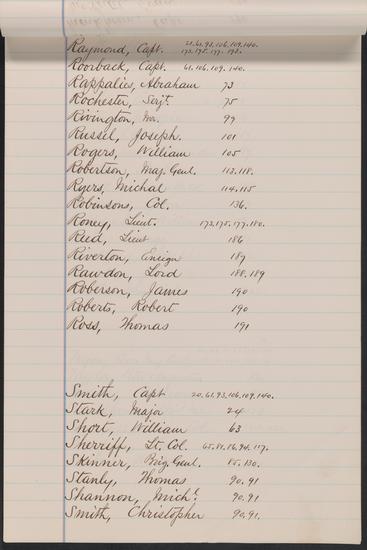 Raymond, Capt. 21.61.93.106.109.140.
173.175.177.193.
Roorback, Capt. 61.106.109.140.
Rappalies, Abraham 73
Rochester, Serjt. 75
Rivington, Mr. 99
Russel, Joseph. 101
Rogers, William 105
Robertson, Maj. Genl. 113.118.
Ryers, Michal 114.115
Robinsons, Col. 136.
Roney, Lieut. 173.175.177.180.
Reed, Lieut 186
Riverton, Ensign 187
Rawdon, Lord 188.189
Roberson, James 190
Roberts, Robert 190
Ross, Thomas 191
Smith, Capt 20.61.93.106.109.140.
Stark, Major 24
Short, William 63
Sherriff, Lt. Col. 65.81.86.94.117.
Skinner, Brig. Genl. 85.130.
Stanly, Thomas 90.91
Shannon, Michl. 90.91
Smith, Christopher 90.91.